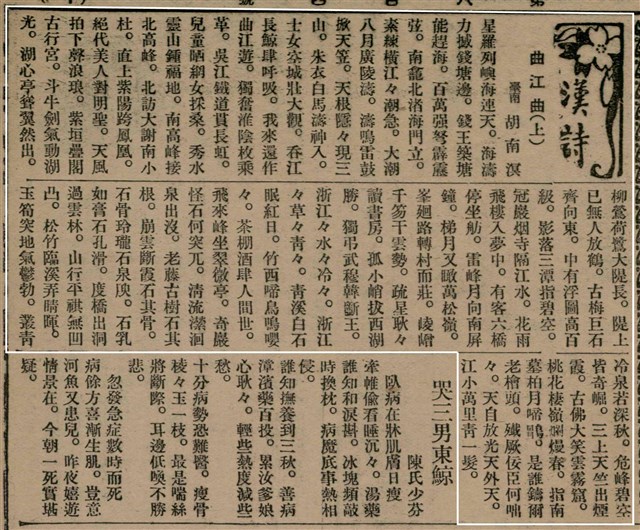 漢詩
曲江曲(上)
臺南 胡南溟
星羅列嶼海連天。海濤
力撼錢塘邊。錢王築塘
能趕海。百萬强弩霹靂
弦。南龕北渚海門立。
素練橫江々潮急。大潮
八月廣陵濤。濤鳴雷鼓
掀天笠。天根隱々現三
山。朱衣白馬濤神入。
士女空城壯大觀。吞江
長鯨肆呼吸。我來還作
曲江遊。獨奮淮陰枚乘
草。吳江鐵道貫長虹。
兒童晒網女採桑。秀水
靈山鍾福地。南高峰接
北高峰。北訪大謝南小
杜。直上紫陽跨鳳凰。
絕代美人對明聖。天風
拍下聲浪琅。紫垣疊閣
古行宮。斗牛劍氣動湖
光。湖心亭聳翼然出。
柳鶯荷鷺大隄長。隄上
已無人放鶴。古梅巨石
齊向東。中有浮圖高百
級。影落三潭指碧空。
冠嚴烟寺隔江水。花雨
飛樓入夢中。有客六橋
停坐舫。雷峰月向南屏
鐘。梯月又瞰萬松嶺。
峯廻路轉村而莊。崚嶒
千笏干雲勢。疏星耿々
讀書房。孤小峭拔西湖
勝。獨弔武穆韓蘄王。
浙江々水々冷々。浙江
々草々靑々。靑溪白石
眠紅日。竹西啼鳥鳴嚶
々。茶棚酒肆人間世。
飛來峰坐翠微亭。奇巖
怪石何突兀。清流瀠洄
泉出沒。老藤古樹石其
根。崩雲斷霞石其骨。
石骨玲瓏石泉腴。石乳
如膏石孔滑。度橋出洞
過雲林。山行平祺無凹
凸。松竹臨溪弄晴暉。
玉筍突地氣鬱勃。叢靑
冷泉若深秋。危峰碧空
皆奇崛。三上天竺出煙
霞。古佛大笑雲霧窟。
桃花棲嶺爛熳春。指南
墓柏月啼鴞。是誰鑄爾
老檜頭。殲厥佞臣何咄
々。天自放光天外天。
江小萬里靑一髮。
哭三男東鯨
陳氏少芬
臥病在牀肌膚日瘦
牽帷偸看睡沉々。湯藥
誰知和淚斟。冰塊頻敲
時換枕。病魔底事熱相
侵。
誰知撫養到三秋。善病
漳濱藥百投。累汝爹娘
心耿々。輕些熱度減些
愁。
十分病勢恐難醫。瘦骨
棱々玉一枝。最是喘絲
將斷際。耳邊低喚不勝
悲。
忽發急症數時而死
病餘方喜漸生肌。豈意
河魚又患兒。昨夜嬉遊
情景在。今朝一死實堪
疑。